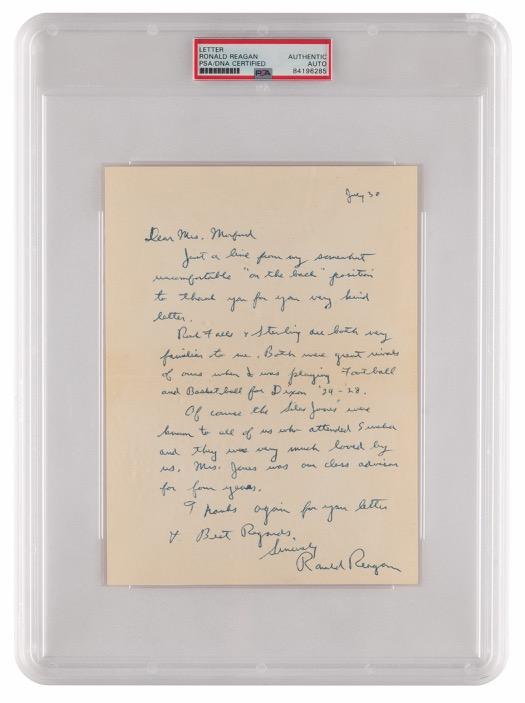 LETTER
RONALD REAGAN AUTHENTIC
PSA/DNA CERTIFIED AUTO
PSA 84196285
July 30
Dear Mrs. Morford
Just a line from my somewhat
uncomfortable "on the back" position
to thank you for your very kind
letter.
Rock Falls & Sterling are both very
familiar to me. Both were great rivals
of ours when I was playing Football
and Basketball for Dixon '24-'28.
Of course the Silas Jones' were
known to all of us who attended Eureka
and they were very much loved by
us. Mrs. Jones was our class advisor
for four years.
Thanks again for your letter
& Best Regards.
Sincerely
Ronald Reagan